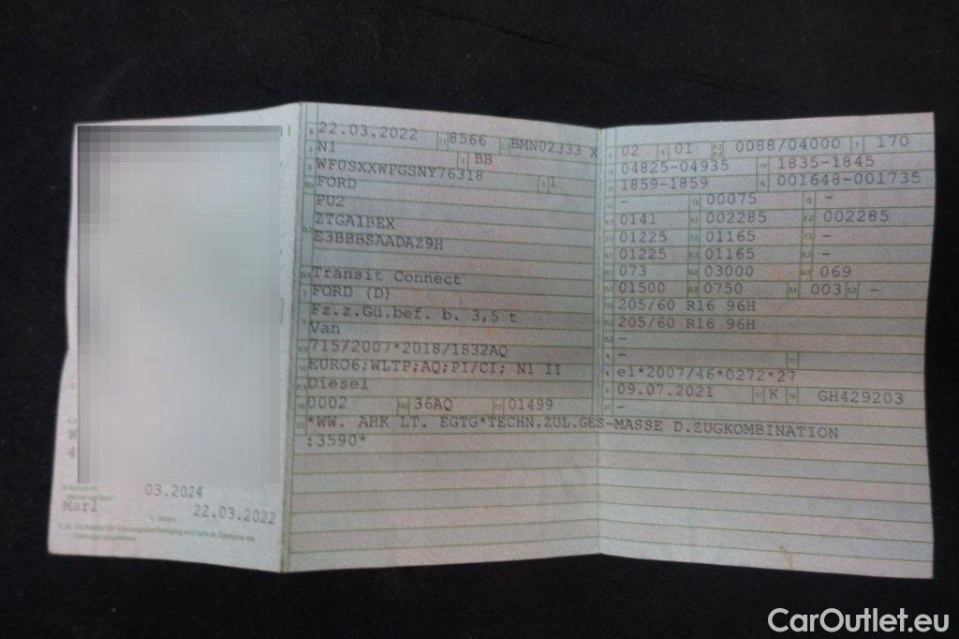 03.2024
Marl
22.03.2022
22.03.2022 8566 BMN02333 X
N1 BB
WF0SXXWPGSNY76318 1
FORD
PU2
ZTGA1BEX
E3BBBSAADAZ9H
Transit Connect
FORD (D)
Fz.z.Gü.bef. b. 3,5 t
Van
715/2007*2018/1832AQ
EURO6;WLTP;AQ;PI/CI; N1 II
Diesel
0002 36AQ 01499
*WW. AHK LT. EGTG*TECHN.ZUL.GES-MASSE D.ZUGKOMBINATION
:3590*
02 01 0088/04000 170
04825-04935 1835-1845
1859-1859 001648-001735
- 00075 -
0141 002285 002285
01225 01165 -
01225 01165 -
073 03000 069
01500 0750 003 -
205/60 R16 96H
205/60 R16 96H
-
-
e1*2007/46*0272*27
09.07.2021 K GH429203
-
CarOutlet.eu